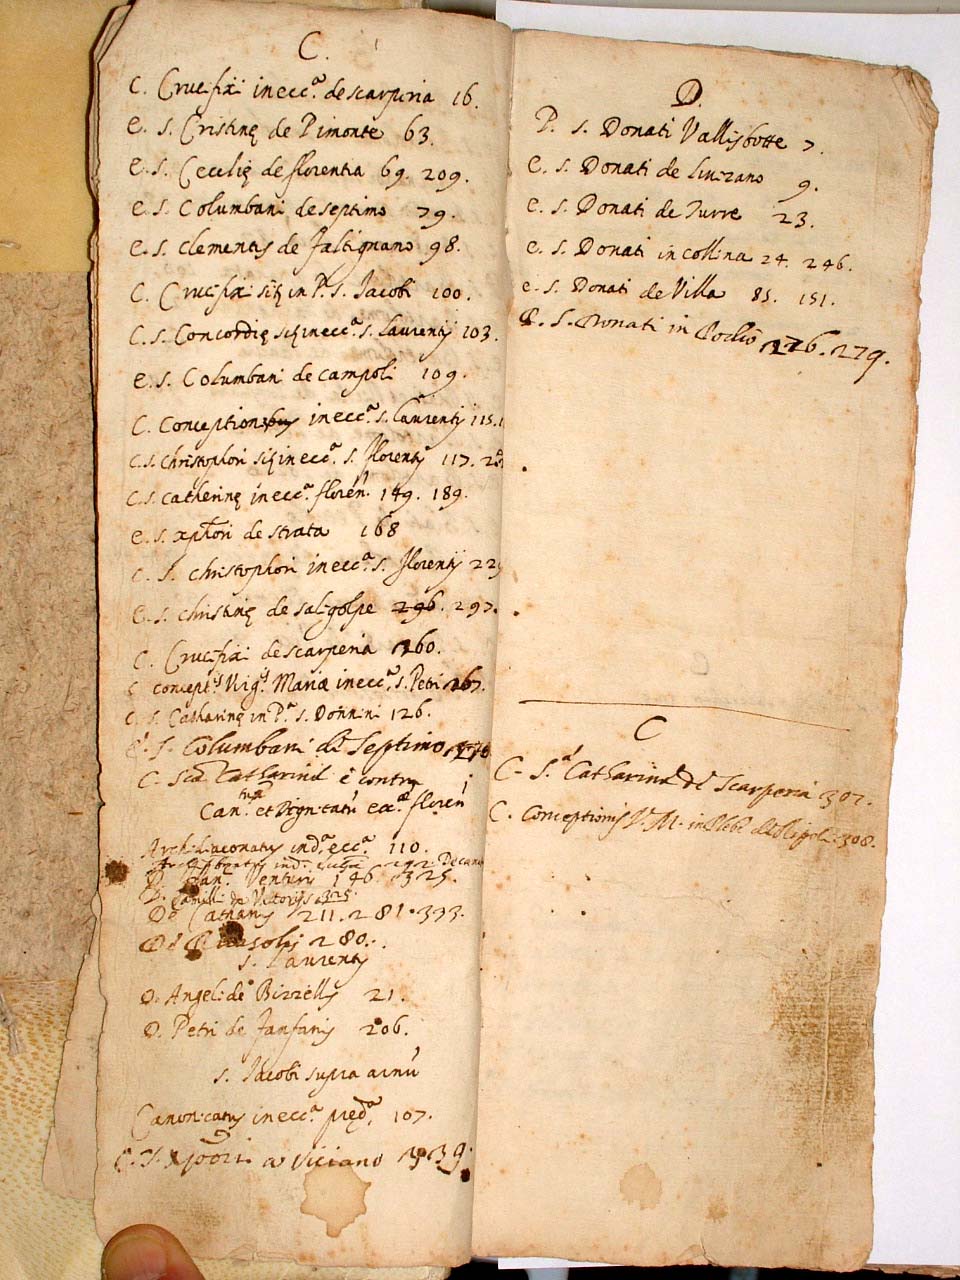 C.
C. Crucifixi in ecc.ª de scarperia 16.
e. s. Cristinę de Pimonte 63.
e. s. Cecilię de florentia 69. 209.
e. s. Columbani de septimo 79.
e. s. clementis de Faltignano 98.
C. Crucifixi sitҙ in P. s. Jacobi 100.
C. s. Concordię sitҙ in ecc.ª s. Laurentij 103.
e. s. Columbani de campoli 109.
C. Conceptionis in ecc.ª s. laurentij 115.
C. s. christophori sitҙ in ecc.ª s. florentij 117.
C. s. catherinę in ecc.ª floren. 149. 189.
e. s. xpħori de strata 168
C. s. christophori in ecc.ª s. florentij
e. s. christinę de saligolpe 296. 297.
C. Crucifixi de scarperia 260.
C concept.s Virg.s Mariæ in ecc.ª s. Petri 267.
C. s. Catharinę in P.ª s. Donnini 126.
e. s. Columbani de Septimo
C. Scæ Catharinæ è contra
Can.tus et Dignitatū ecc.æ floren
Archidiaconatus ind.ª ecc.ª 110.
D. Venturi 146. 325.
D. Camilli de Victorijs 325
De Cathanis 211. 281. 333.
De Ricasolis 280.
s. Laurentij
D. Angeli de Bizzellis 21.
D. Petri de Fanfanis 206.
s. Jacobi supra arnū
Canonicatus in ecc.ª pręd.ª 107.
a Viciano
D.
P. s. Donati Vallisbotte 7.
e. s. Donati de Lucizano 9.
e. s. Donati de Turre 23.
e. s. Donati in collina 24. 246.
e. s. Donati de Villa 85. 151.
e. s. Donati in Pocio 276. 279.
C
C. S.ª Catharinæ de Scarperia 307.
C. Conceptionis V. M. in Plebe de Ripoli 308.